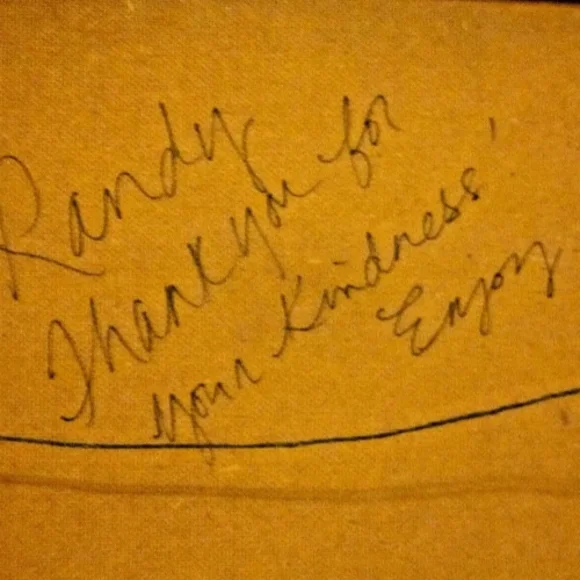 Randy
Thank you for
your kindness'
Enjoy